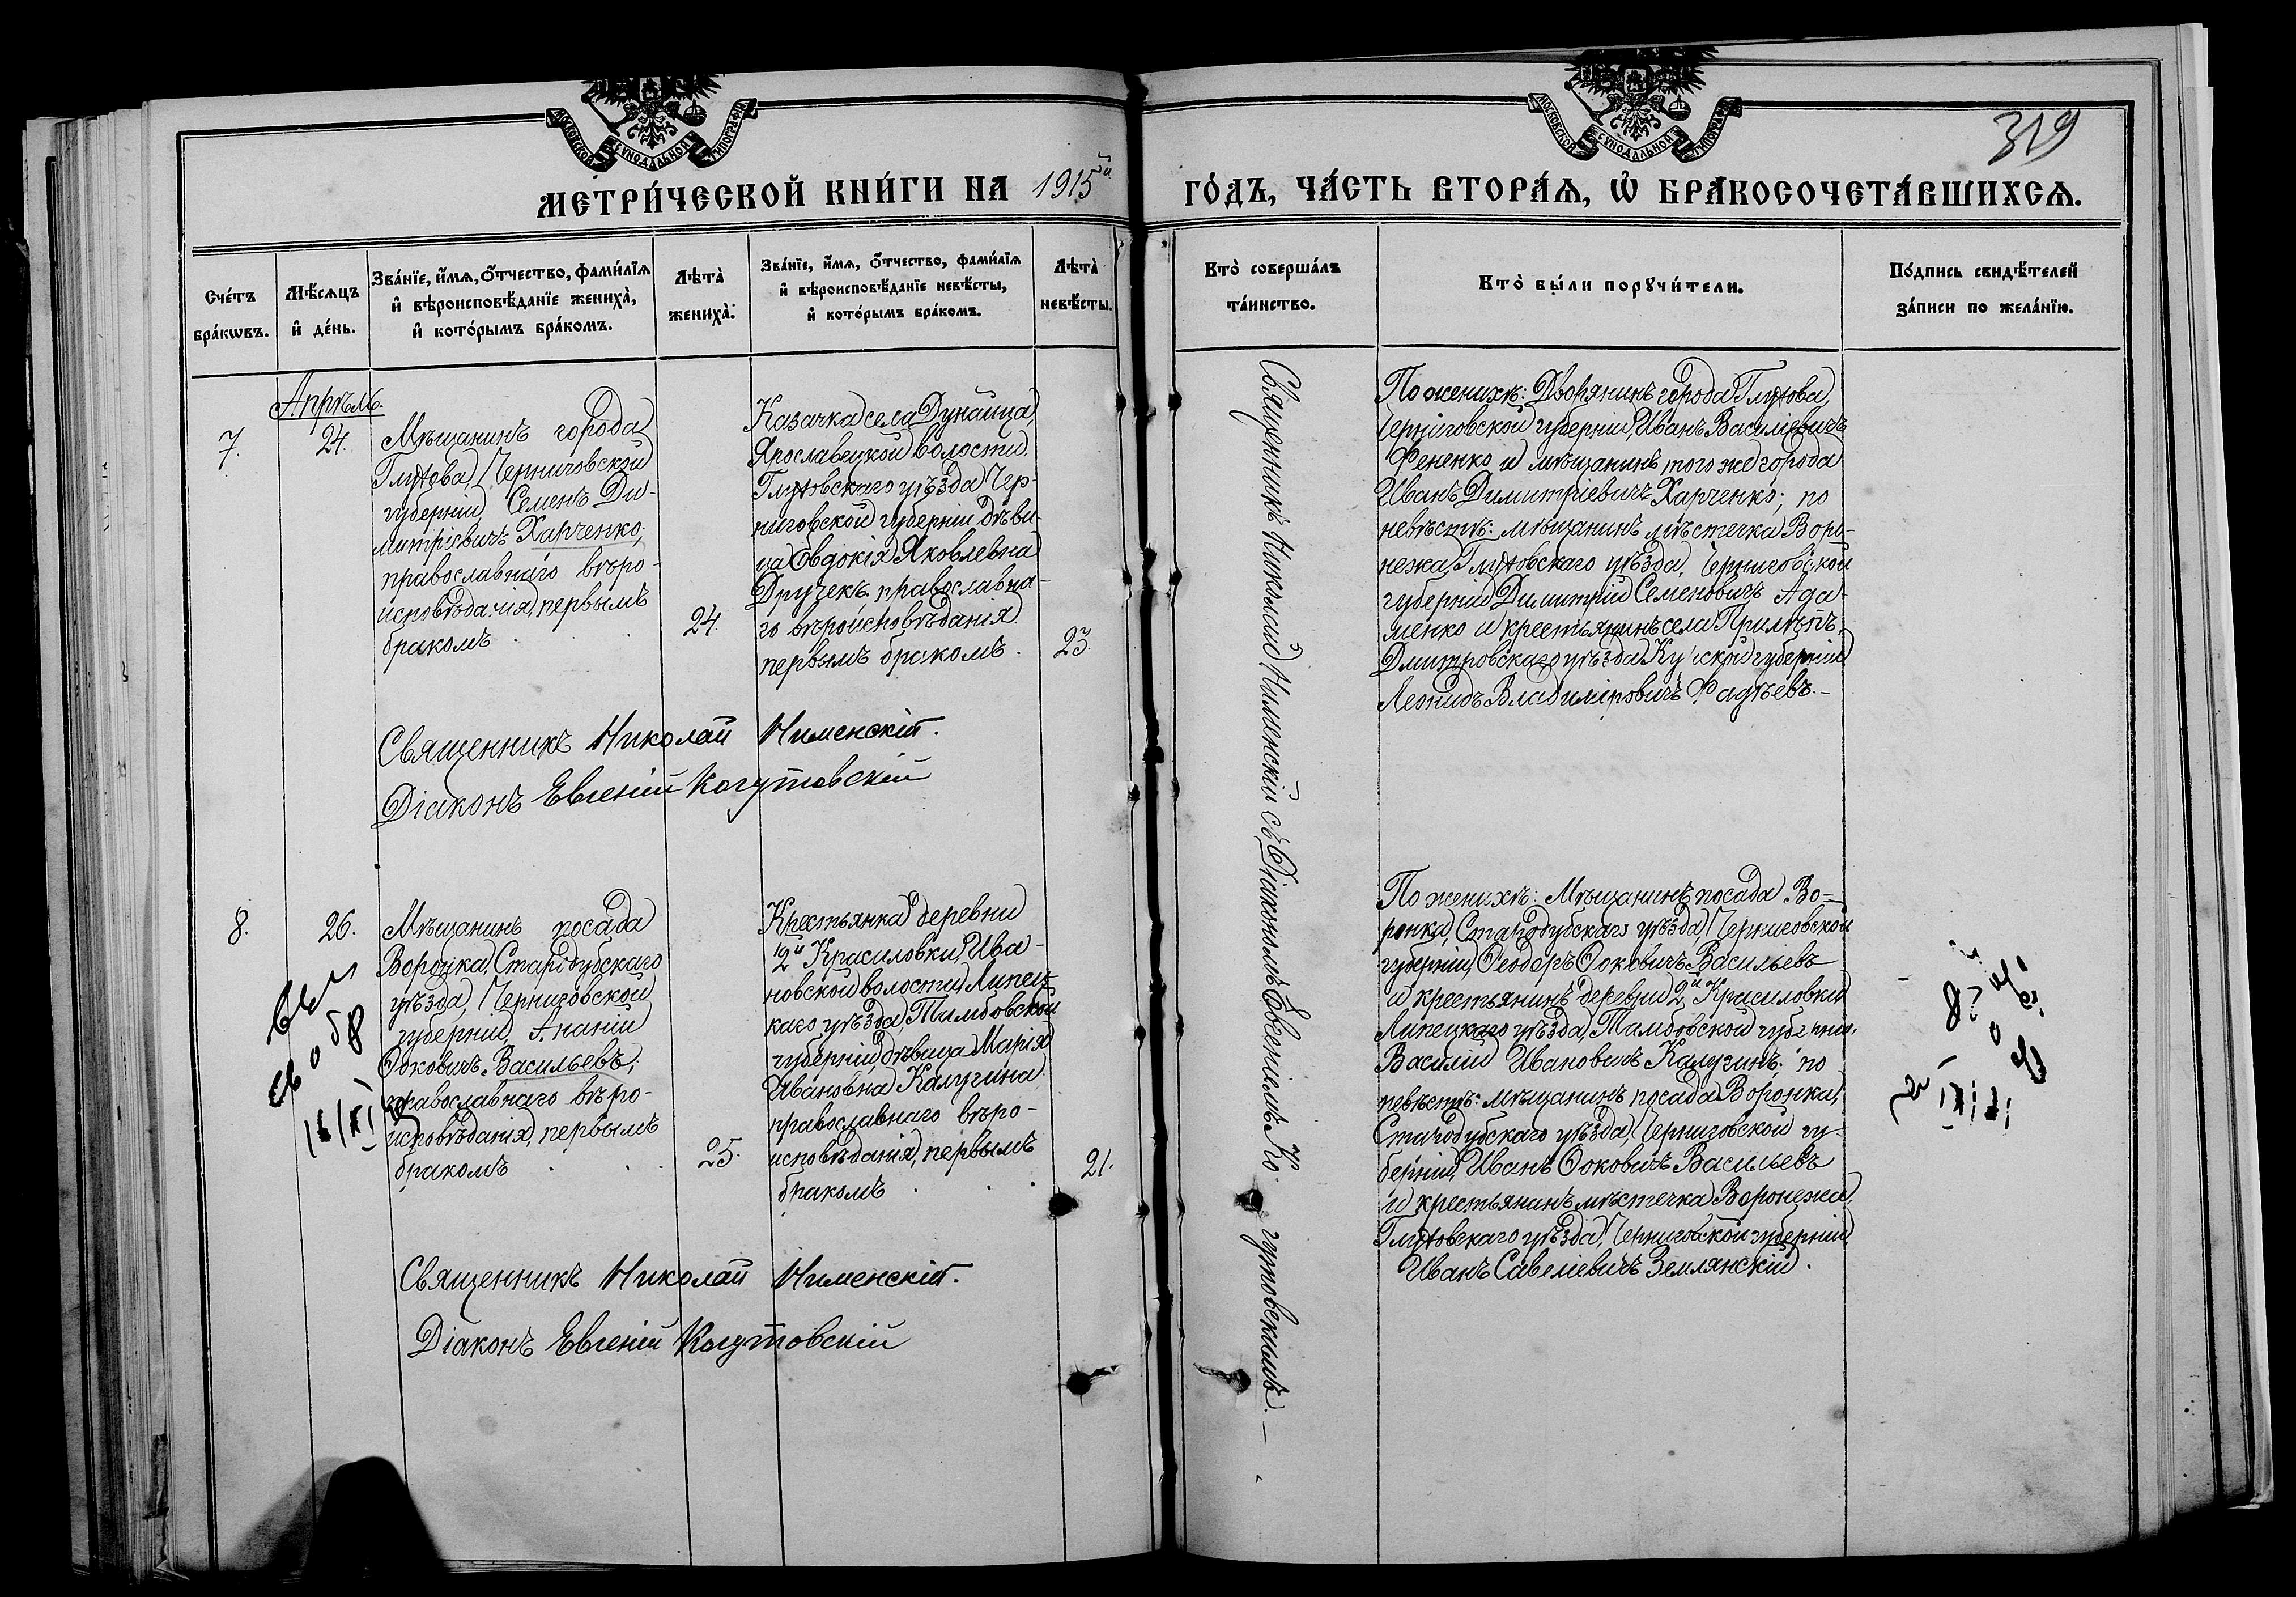 МОСКОВСКОЙ СѴНОДАЛЬНОЙ ТИПОГРАФІИ
МОСКОВСКОЙ СѴНОДАЛЬНОЙ ТИПОГРАФІИ
319
МЕТРИ́ЧЕСКОЙ КНИ́ГИ НА 1915й ГО́ДЪ, ЧА́СТЬ ВТОРА́Ѧ, Ѡ҆ БРАКОСОЧЕТА́ВШИХСѦ.
Сче́тъ
бра́кѡвъ.
Мѣ́сѧцъ
и҆ де́нь.
Зва́нїе, и҆́мѧ, о҆́тчество, фами́лїѧ
и҆ вѣроисповѣ́данїе жениха̀,
и҆ кото́рымъ бра́комъ.
Лѣта̀
жениха̀.
Зва́нїе, и҆́мѧ, о҆́тчество, фами́лїѧ
и҆ вѣроисповѣ́данїе невѣ́сты,
и҆ кото́рымъ бра́комъ.
Лѣта̀
невѣ́сты.
Кто̀ соверша́лъ
та́инство.
Кто̀ бы́ли порꙋчи́тели.
По́дпись свидѣ́телей
за́писи по жела́нїю.
Апрѣль.
7.
24.
Мѣщанинъ города
Глухова, Черниговской
губерніи Семенъ Ди-
митріевичъ Харченко,
православнаго вѣро-
исповѣданія, первымъ
бракомъ
24.
Казачка села Дунайца,
Ярославецкой волости,
Глуховскаго уѣзда Чер-
ниговской губерніи, дѣви-
ца Евдокія Яковлевна
Дручекъ, православна-
го вѣроисповѣданія
первымъ бракомъ.
23.
Священникъ Николай Нименскій съ Діакономъ Евгеніемъ Ко-
гутовскимъ. —
По женихѣ: Дворянинъ города Глухова,
Черниговской губерніи, Иванъ Василіевичъ
Фененко и мѣщанинъ того же города
Иванъ Димитріевичъ Харченко; по
невѣстѣ: мѣщанинъ мѣстечка Воро-
нежа, Глуховскаго уѣзда, Черниговской
губерніи Димитрій Семеновичъ Ада-
менко и крестьянинъ села Прилѣпъ,
Дмитровскаго уѣзда Курской губерніи
Леонидъ Владиміровичъ Фадѣевъ. —
Священникъ Николай Нименскій.
Діаконъ Евгеній Когутовскій
8.
26.
Мѣщанинъ посада
Воронка, Стародубскаго
уѣзда, Черниговской
губерніи, Ананій
Фоковичъ Васильевъ,
православнаго вѣро-
исповѣданія, первымъ
бракомъ
25.
Крестьянка деревни
2й Красиловки, Ива-
новской волости, Липец-
каго уѣзда, Тамбовской
губерніи, дѣвица Марія
Ивановна Калугина
православнаго вѣро-
исповѣданія, первымъ
бракомъ
21.
По женихѣ: Мѣщанинъ посада Во-
ронка, Стародубскаго уѣзда, Черниговской
губерніи, Ѳеодоръ Фоковичъ Васильевъ
и крестьянинъ деревни 2й Красиловки
Липецкаго уѣзда, Тамбовской губерніи,
Василій Ивановичъ Калугинъ; по
невѣстѣ: мѣщанинъ посада Воронка,
Стародубскаго уѣзда, Черниговской гу-
берніи, Иванъ Фоковичъ Васильевъ
и крестьянинъ мѣстечка Воронежа,
Глуховскаго уѣзда, Черниговской губерніи
Иванъ Савеліевичъ Землянскій.
Священникъ Николай Нименскій.
Діаконъ Евгеній Когутовскій